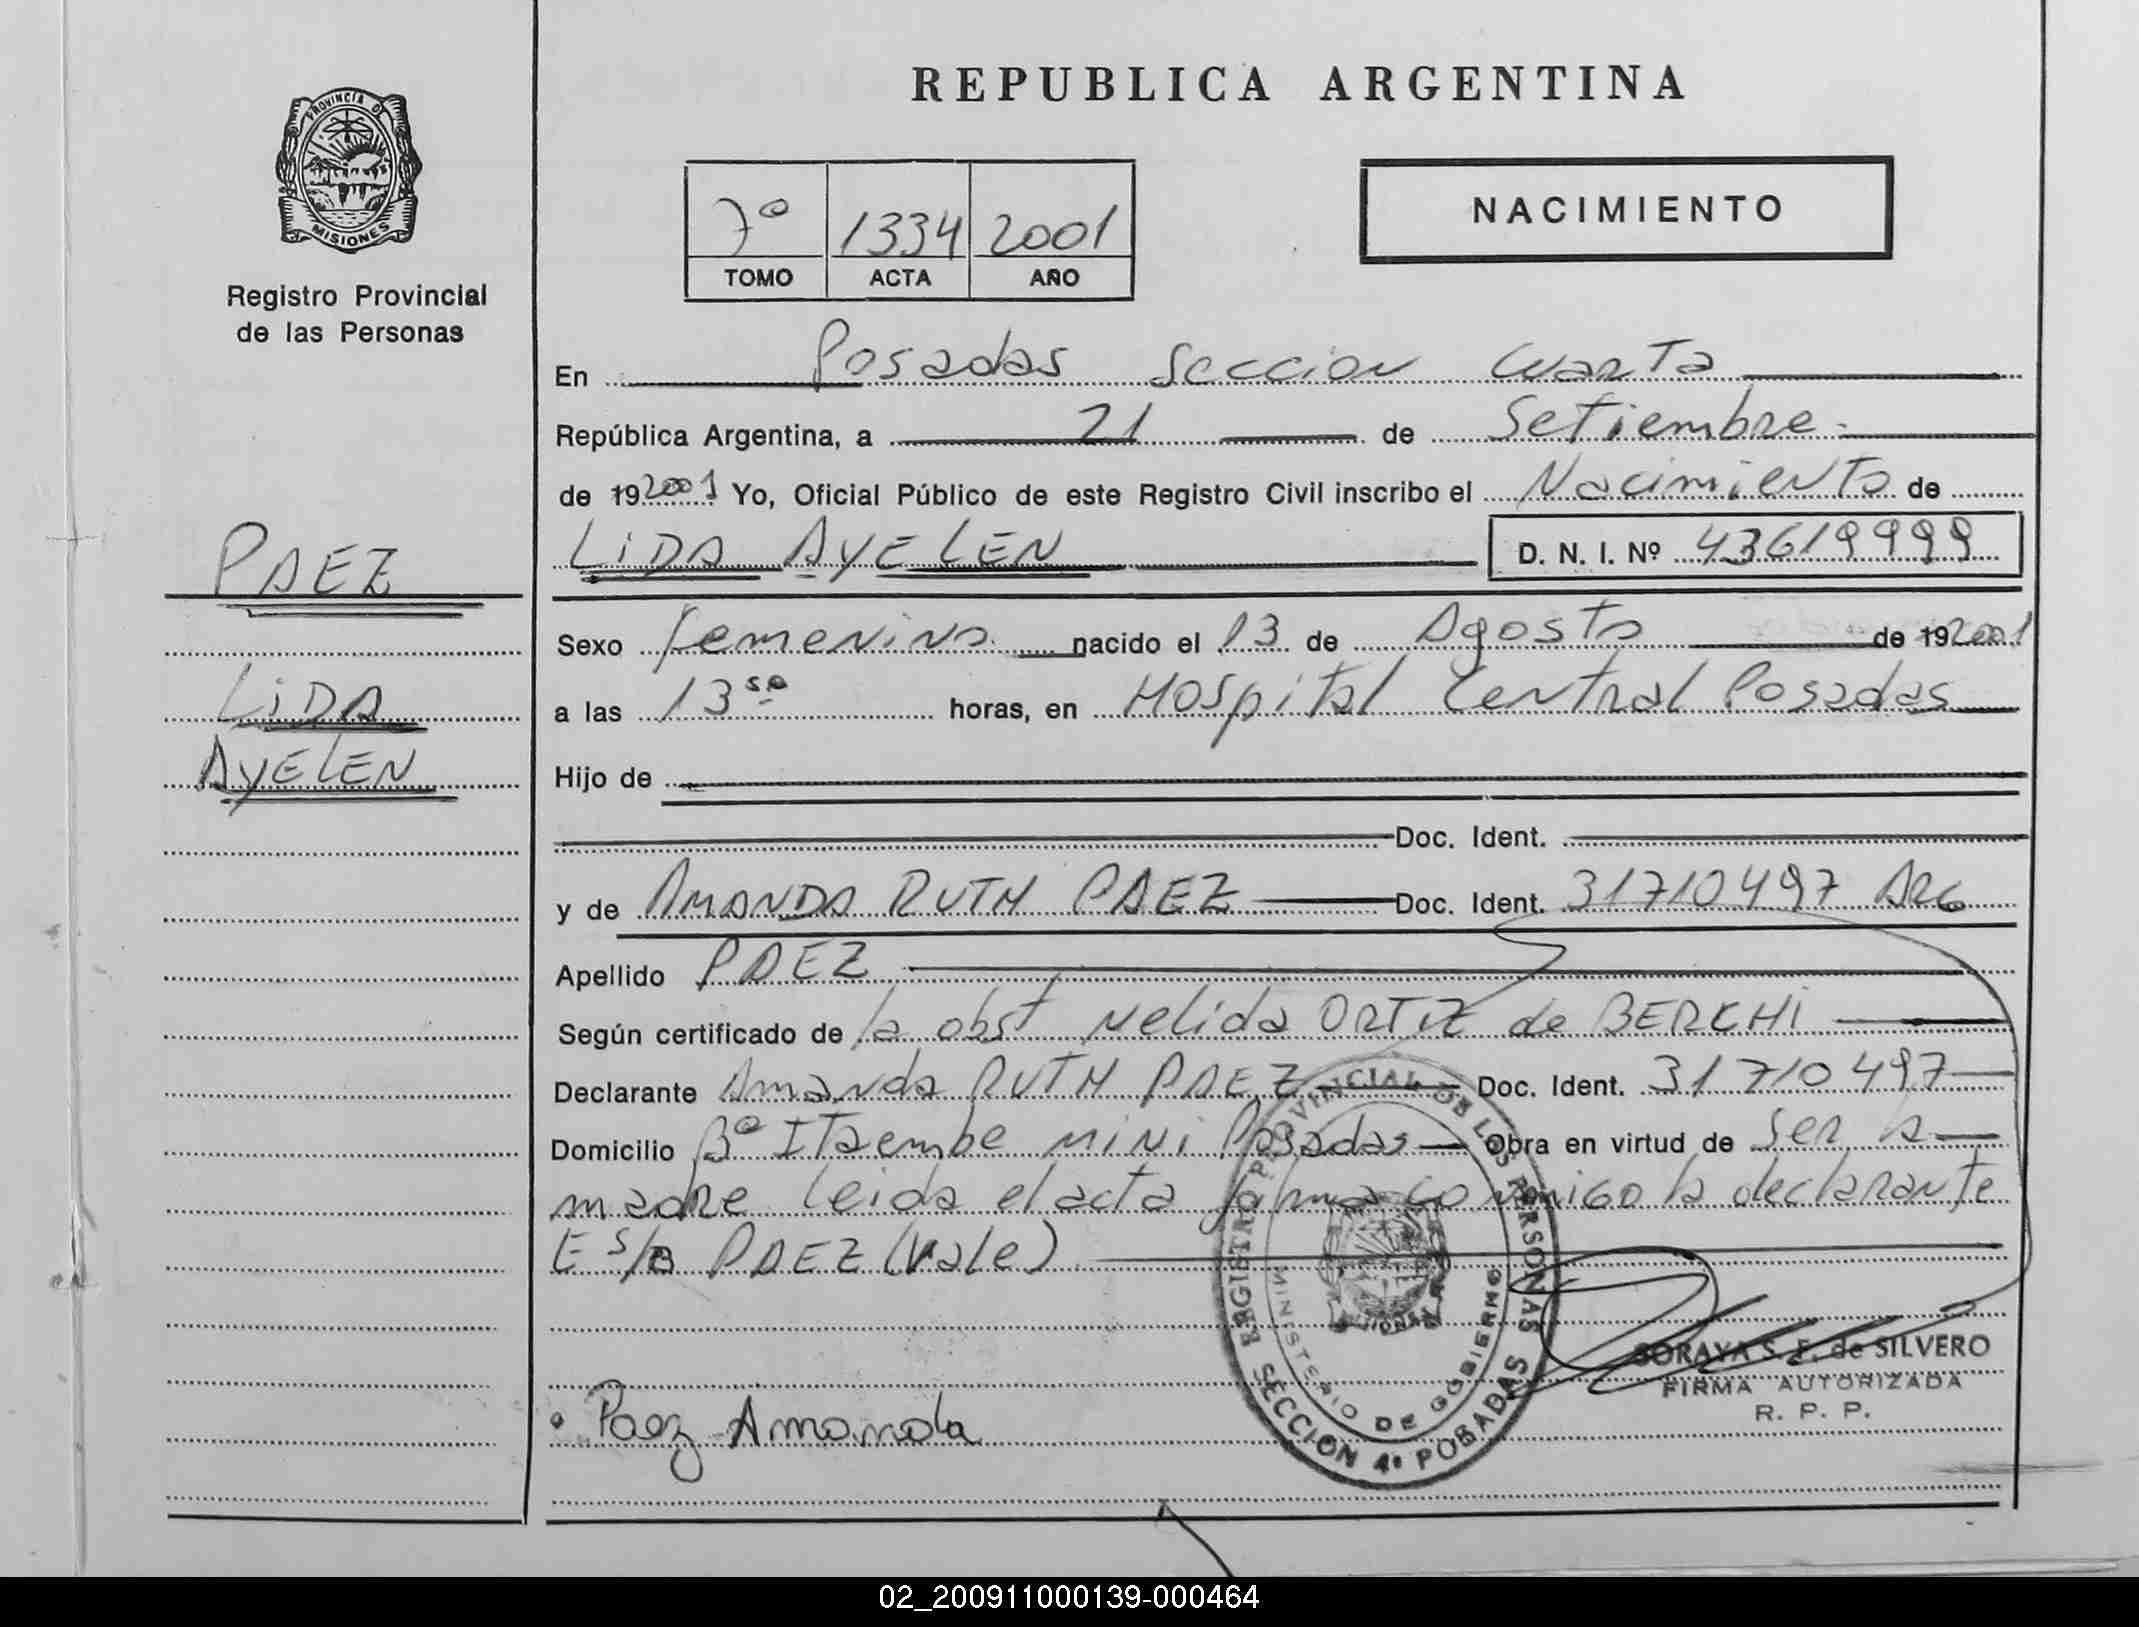 REPUBLICA ARGENTINA
PROVINCIA DE
MISIONES
Registro Provincial
de las Personas
7º 1334 2001
TOMO ACTA AÑO
NACIMIENTO
En Posadas Seccion Cuarta
República Argentina, a 21 de Setiembre
de 19 2001 Yo, Oficial Público de este Registro Civil inscribo el Nacimiento de
LIDA AYELEN D. N. I. Nº 43619999
PAEZ
LIDA
AYELEN
Sexo femenino nacido el 13 de Agosto de 19 2001
a las 13 50 horas, en Hospital Central Posadas
Hijo de
Doc. Ident.
y de AMANDA RUTH PAEZ Doc. Ident. 31710497 ARG
Apellido PAEZ
Según certificado de la obst Nelida ORTIZ de BERCHI
Declarante Amanda RUTH PAEZ Doc. Ident. 31710497
Domicilio Bº Itaembe mini Posadas Obra en virtud de ser la
madre leida el acta firma conmigo la declarante
E S/B PAEZ (vale)
REGISTRO PROVINCIAL DE LAS PERSONAS
MINISTERIO DE GOBIERNO
SECCION 4ª POSADAS
SORAYA S. F. de SILVERO
FIRMA AUTORIZADA
R. P. P.
Paez Amanda
02_200911000139-000464